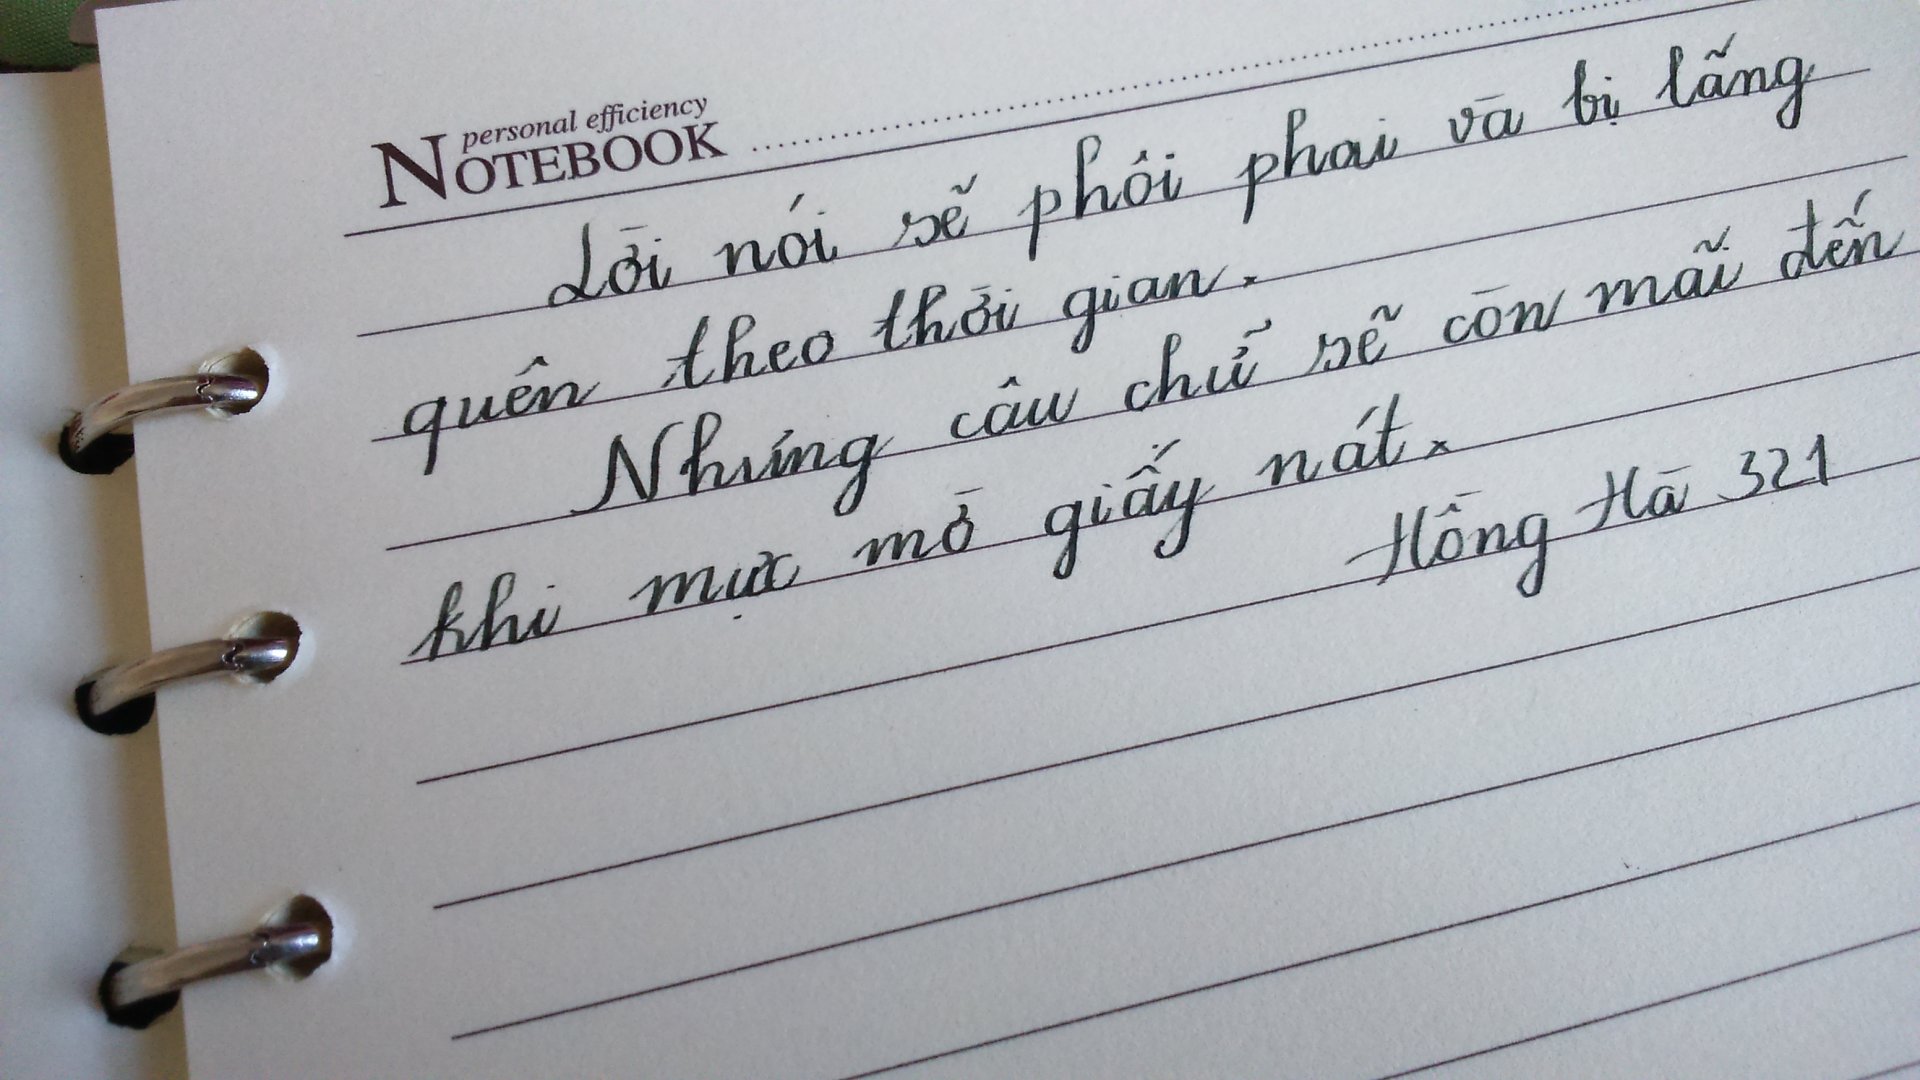 personal efficiency
NOTEBOOK
Lời nói sẽ phôi phai và bị lãng
quên theo thời gian.
Nhưng câu chữ sẽ còn mãi đến
khi mực mờ giấy nát.
Hồng Hà 321